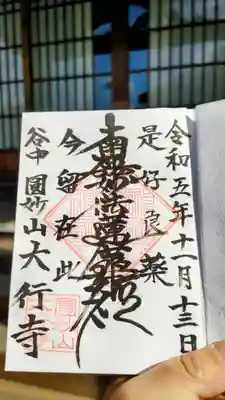 令和五年十一月十三日
是好良薬
南無妙法蓮華経
今留在此
谷中 圓妙山大行寺